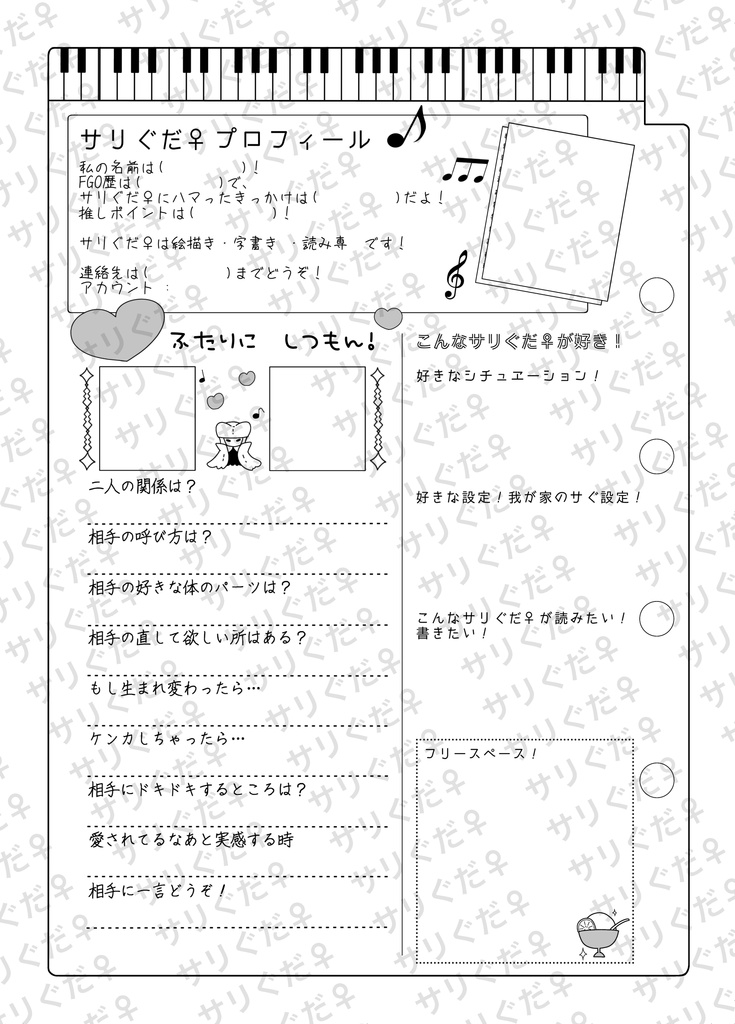 サリぐだ♀プロフィール
私の名前は(　　　　　)！
FGO歴は(　　　　　)で、
サリぐだ♀にハマったきっかけは(　　　　　)だよ！
推しポイントは(　　　　　)！
サリぐだ♀は絵描き・字書き ・読み専　です！
連絡先は(　　　　　)までどうぞ！
アカウント：
ふたりに　しつもん！
二人の関係は？
相手の呼び方は？
相手の好きな体のパーツは？
相手の直して欲しい所はある？
もし生まれ変わったら…
ケンカしちゃったら…
相手にドキドキするところは？
愛されてるなあと実感する時
相手に一言どうぞ！
こんなサリぐだ♀が好き！
好きなシチュエーション！
好きな設定！我が家のサぐ設定！
こんなサリぐだ♀が読みたい！
書きたい！
フリースペース！
サリぐだ♀